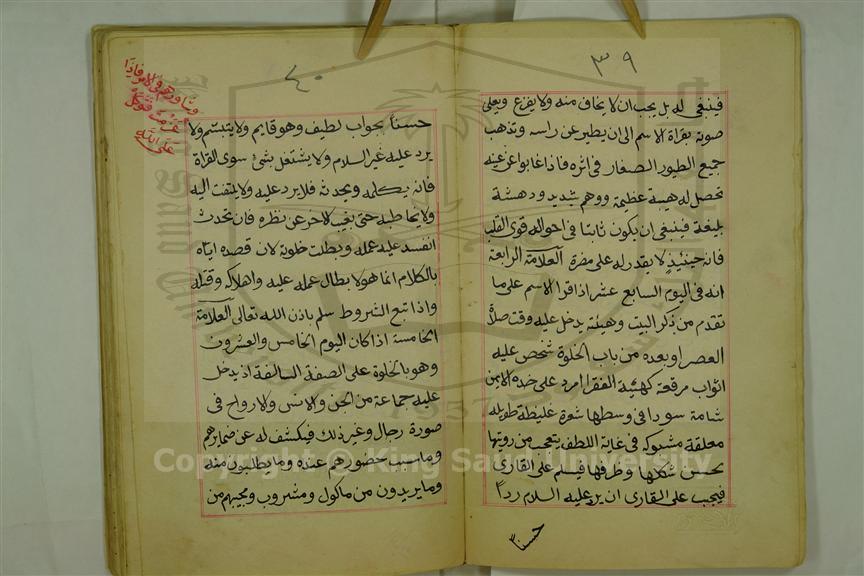 ٣٩
فينبغى له بل يجب ان لا يخاف منه ولا يفزع ويعلى
صوته بقراة الاسم الى ان يطير عن راسه وتذهب
جميع الطيور الصغار فى اثره فاذا غابوا عن عينه
تحصل له هيبة عظيمة ووهم شديد ودهشة
بليغة فينبغى ان يكون ثابتا فى احواله قوى القلب
فانه حينيذ لا يقدر له على مضرة العلامة الرابعة
انه فى اليوم السابع عشر اذا قرا الاسم على ما
تقدم من ذكر البيت وهيئته يدخل عليه وقت صلاة
العصر او بعده من باب الخلوة شخص عليه
اثواب مرقعة كهيئة الفقرا امرد على خده الايمن
شامة سودا فى وسطها شعرة غليظة طويله
معلقة مشبوكه فى غاية اللطف يتعجب من رويتها
بحسن شكلها وظرفها فيسلم على القارى
فيجب على القارى ان يرد عليه السلام ردا
حسنا
٤٠
وشاورهم فى الامر فاذا
عزمت فتوكل
على الله
حسنا بجواب لطيف وهو قايم ولا يتبسم ولا
يرد عليه غير السلام ولا يشتغل بشئ سوى القراة
فانه يكلمه ويحدثه فلا يرد عليه ولا يلتفت اليه
ولا يخاطبه حتى يغيب الاخر عن نظره فان تحدث
انفسد عليه عمله وبطلت خلوته لان قصده اياه
بالكلام انما هو لابطال عمله عليه واهلاكه وقتله
واذا تبع الشروط سلم باذن الله تعالى العلامة
الخامسة اذا كان اليوم الخامس والعشرون
وهو بالخلوة على الصفة السالفة اذ يدخل
عليه جماعة من الجن والانس والارواح فى
صورة رجال وغير ذلك فيكشف له عن ضمايرهم
وما سبب حضورهم عنده وما يطلبون منه
وما يريدون من ماكول ومشروب ويجيبهم من
Copyright © King Saud University
1957